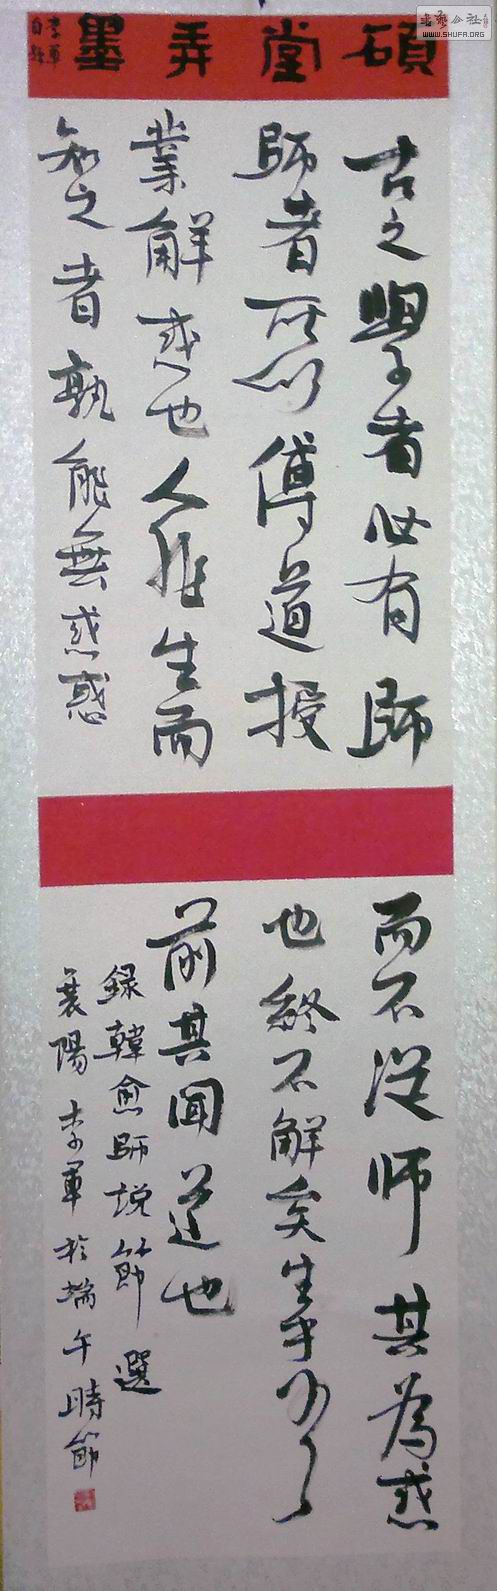 書藝公社
WWW.SHUFA.ORG
碩堂弄墨
李軍
自題
古之學者必有師
師者所以傳道授
業解惑也人非生而
知之者孰能無惑惑
而不從師其為惑
也終不解矣生乎
前其聞道也
録韓愈師說節選
襄陽李軍於端午時節